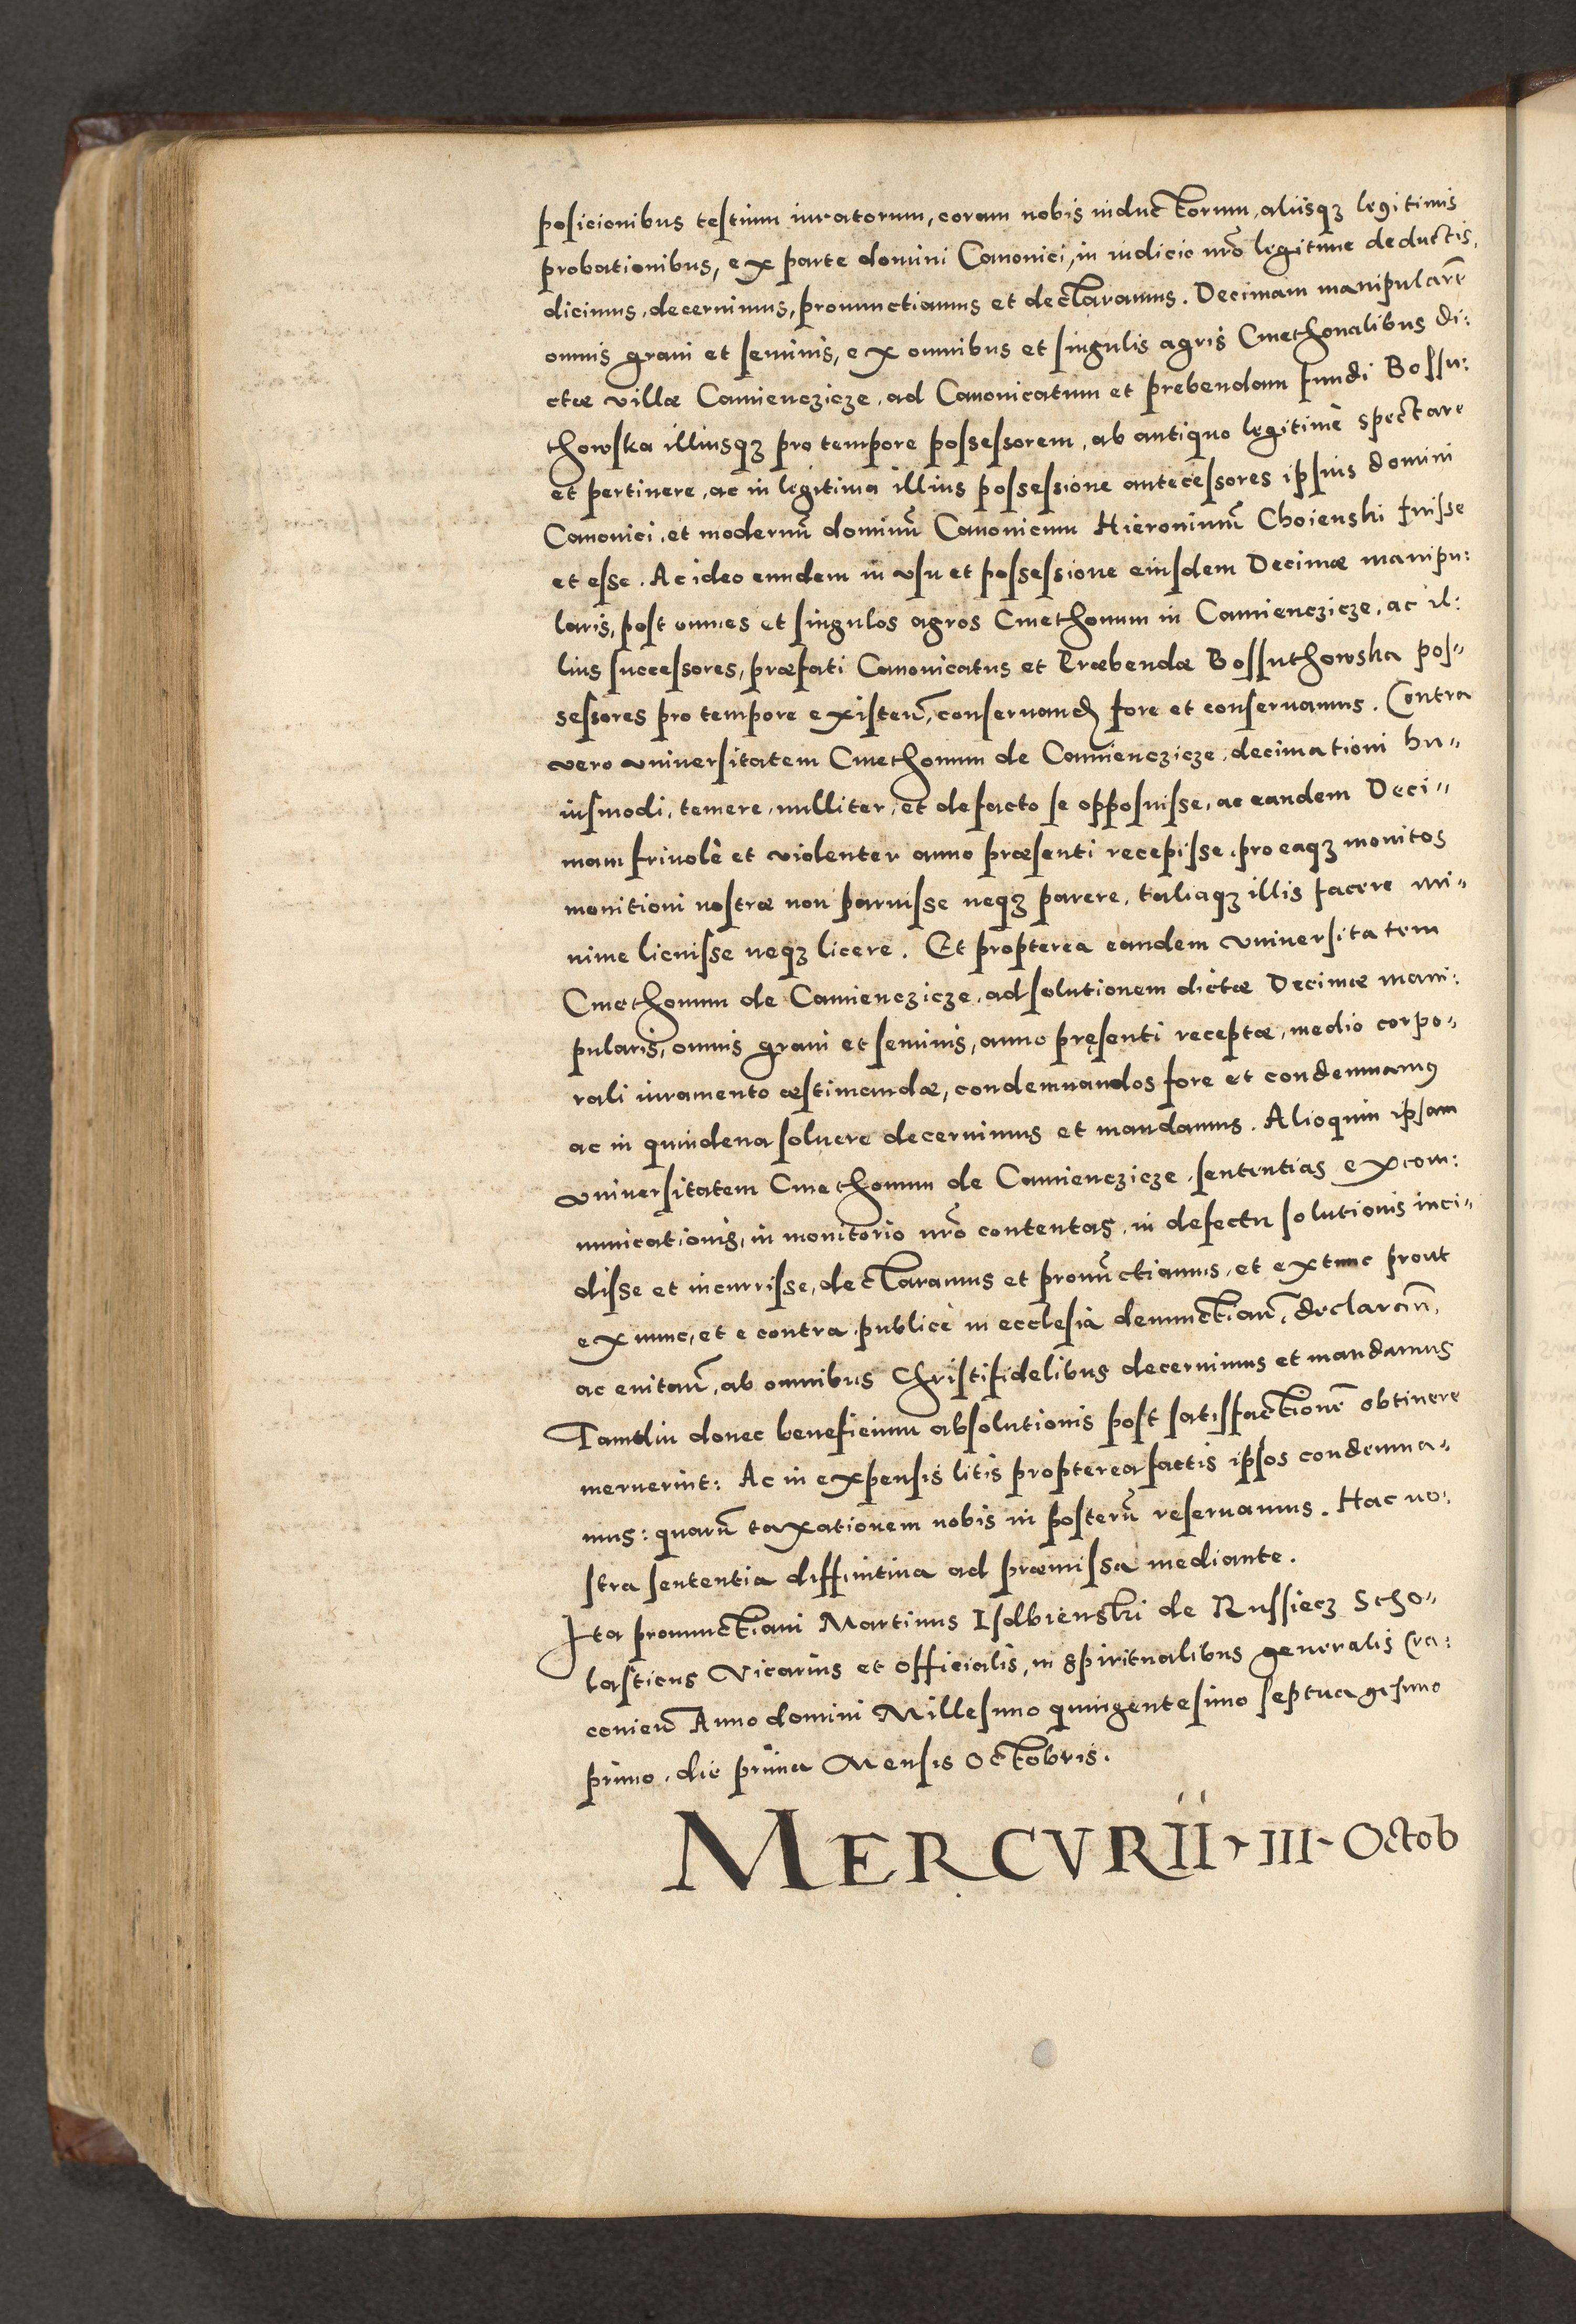 posicionibus testium iuratorum, coram nobis inductorum, aliisqꝫ legitimis
probationibus, ex parte domini Canonici, in iudicio nrō legitime deductis,
dicimus, decernimus, pronunctiamus et declaramus. Decimam manipularē
omnis grani et seminis, ex omnibus et singulis agris Cmethonalibus di:
ctæ villæ Camienczicze, ad Canonicatum et prebendam fundi Bossu:
thowska illiusqꝫ pro tempore possessorem, ab antiquo legitimè spectare
et pertinere, ac in legitima illius possessione antecessores ipsius domini
Canonici, et modernū dominū Canonicum Hieronimū Choienski fuisse
et esse. Ac ideo eundem in vsu et possessione eiusdem Decimæ manipu:
laris, post omnes et singulos agros Cmethonum in Camienczicze, ac il:
lius successores, præfati Canonicatus et Præbendæ Bossuthowska pos„
sessores pro tempore existeñ, conseruandꝭ fore et conseruamus. Contra
vero vniuersitatem Cmethonum de Camienczicze, decimationi hu„
iusmodi, temere, nulliter, et defacto se opposuisse, ac eandem Deci„
mam friuolè et violenter anno præsenti recepisse, pro eaqꝫ monitos
monitioni nostræ non paruisse neqꝫ parere, taliaqꝫ illis facere mi„
nime licuisse neqꝫ licere. Et propterea eandem vniuersitatem
Cmethonum de Camienczicze, ad solutionem dictæ Decimæ mani:
pularis, omnis grani et seminis, anno pręsenti receptæ, medio corpo„
rali iuramento æstimandæ, condemnandos fore et condemnamꝰ
ac in quindena soluere decernimus et mandamus. Alioquin ipsam
vniuersitatem Cmethonum de Camienczicze, sententias excom:
municationis, in monitorio nrō contentas, in defectu solutionis inci„
disse et incurrisse, declaramus et pronūctiamus, et extunc prout
ex nunc, et e contra, publicè in ecclesia denunctiañ, declarañ,
ac euitañ, ab omnibus Christifidelibus decernimus et mandamus
Tamdiu donec beneficium absolutionis post satisfactionē obtinere
meruerint: Ac in expensis litis propterea factis ipsos condemna„
mus: quarū taxationem nobis in posterū reseruamus. Hac no:
stra sententia diffinitiua ad præmissa mediante.
Ita pronunctiaui Martinus Isdbienski de Russiecz Scho„
lasticus Vicarius et Officialis, in Spiritualibus generalis Cra:
couieñ Anno domini Millesimo quingentesimo septuagesimo
primo, die prima Mensis Octobris.
MERCVRII III Octob